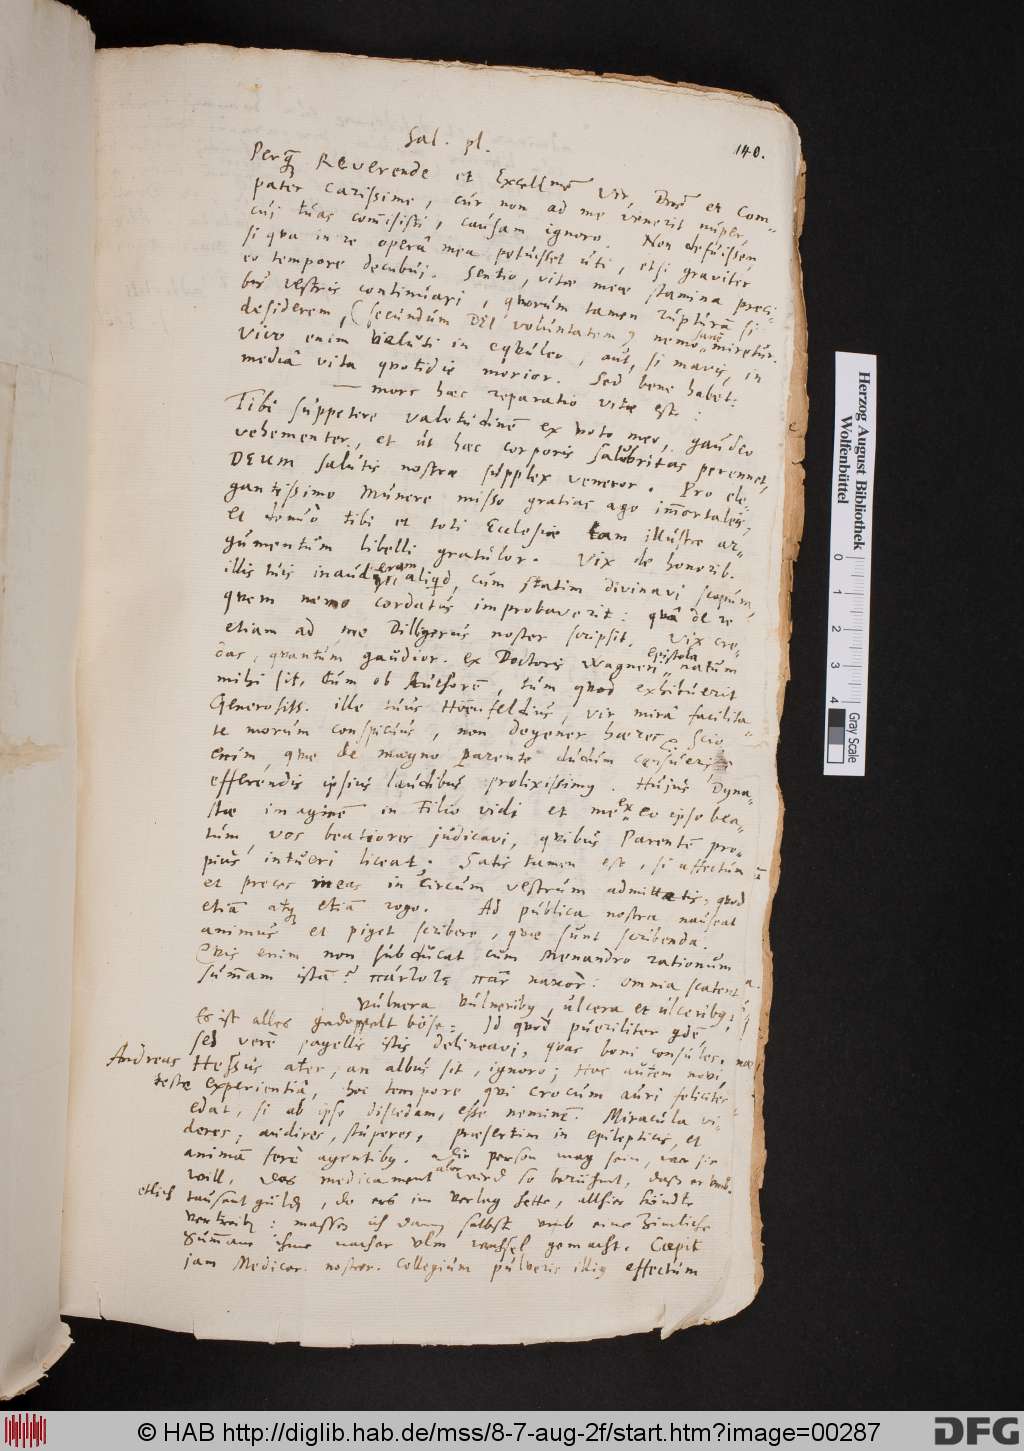 140.
Sal. pl.
Perq Reverende et Excellme Vir, Dne et Com-
pater carissime, cur non ad me venerit nuper,
cui tuas comisisti, causam ignoro. Non defuissem
si qua in re operâ mea potuisset uti, etsi graviter
eo tempore decubui. Sentio, vitae meae stamina preci-
bus vestris continuari, quorum tamen rupturā si
desiderem, (secundum DEI voluntatem) nemo sane miretur.
Vivo enim veluti in equuleo, aut, si mavis, in
mediâ vita quotidie morior. Sed bene habet:
mors haec reparatio vitae est:
Tibi suppetere valetudinē ex voto meo, gaudeo
vehementer, et ut haec corporis salubritas perennet,
DEUM salutis nostrae supplex veneror. Pro ele-
gantissimo munere misso gratias ago immortales,
et tibi et toti Ecclesiae tam illustre ar-
gumentum libelli gratulor. Vix de honorib.
illis tuis inaudieram aliqd, cum statim divinavi scopum,
quem nemo cordatus improbaverit: quâ de re
etiam ad me Dilligerus noster scripsit. Vix cre-
das, quantum gaudior. ex Doctoris Wagneri epistola natum
mihi sit, tum ob Authorē, tum quod exhibuerit
Generosiss. ille tuus Hoenfeldius, vir mirâ facilita-
te morum conspicuus, non degener haeres. Scio
enim, quae de magno parente dudum
efferendis ipsius laudibus prolixissimus. Hujus Dyna-
stae imaginē in Filio vidi et me ex eo ipso bea-
tum, vos beatiores judicavi, quibus Parentē pro-
pius intueri liceat. Satis tamen est, si affectum
et preces meas in circum vestrum admittatis, quod
etiā atq etiā rogo. Ad publica nostra nauseat
animus et piget scribere, quae sunt scribenda.
Quis enim non subducat cum Menandro rationum
summam istā? omnia scatent
vulnera vulneribus, ulcera et ulceribus;
Es ist alles gedoppelt böse: Id quod pueriliter qdē
sed verē pagellis istis delineavi, quas boni consules.
Andreas Hessus ater, an albus sit, ignoro; Hoc autem novi,
teste Experientiâ, hoc tempore qui crocum auri feliciter
edat, si ab ipso discedam, esse neminē. Miracula vi-
deres, audires, stuperes, praesertim in epilepticis, et
animā ferē agentibus. Die person mag sein, wer sie
will, das medicament aber wird so berühmt, dass er umb
etlich tausent güldn, do ers im verlag hette, allhier köndte
vertreibn: massen ich dann selbst umb eine Zimliche
Summam ihme nacher Ulm wechsel gemacht. Coepit
jam Medicor. nostror. Collegium pulveris illius effectum
Herzog August Bibliothek
Wolfenbüttel
0 1 2 3 4
Gray Scale
© HAB http://diglib.hab.de/mss/8-7-aug-2f/start.htm?image=00287
DFG